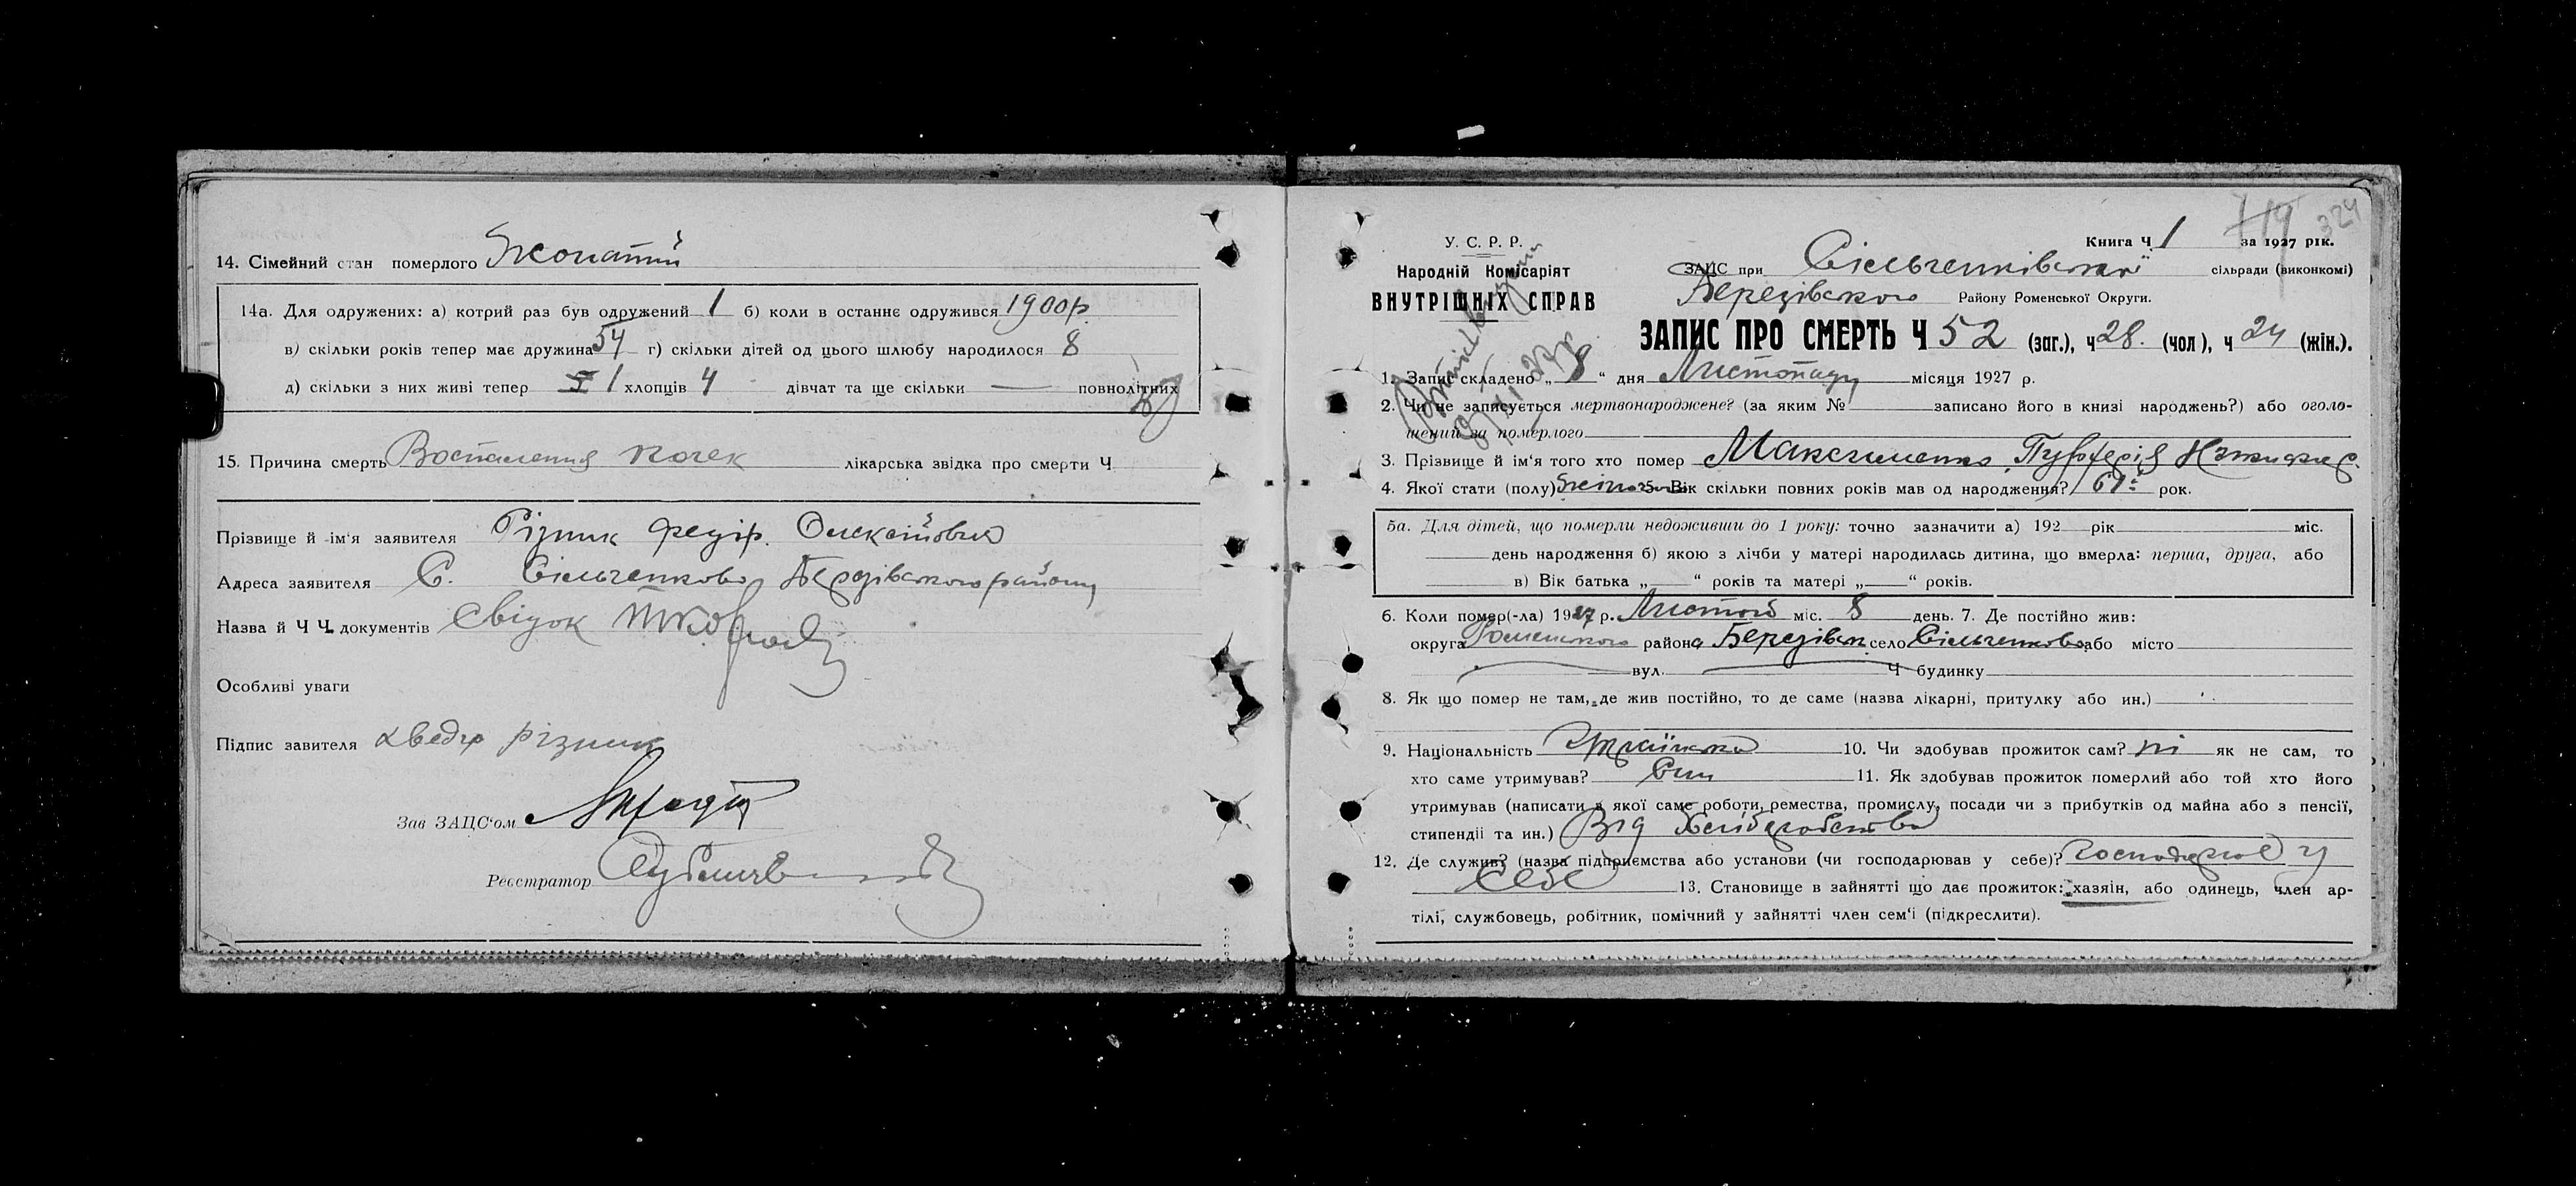 14. Сімейний стан померлого Жонатий
14а. Для одружених: а) котрий раз був одружений 1 б) коли в останнє одружився 1900р.
в) скільки років тепер має дружина 54 г) скільки дітей од цього шлюбу народилося 8
д) скільки з них живі тепер 1 хлопців 4 дівчат та ще скільки — повнолітних
15. Причина смерть Воспаления почек лікарська звідка про смерти Ч
Прізвище й ім'я заявителя Різник Федір Олексійович
Адреса заявителя С. Сільченково Березівського району
Назва й Ч Ч документів Свідок
Особливі уваги
Підпис завителя Хведір Різник
Зав ЗАЦС'ом
Реєстратор
119 324
У. С. Р. Р.
Народній Комісаріят
ВНУТРІШНІХ СПРАВ
Книга Ч 1 за 1927 рік.
ЗАЦС при Сільченківській сільради (виконкомі)
Березівського Району Роменської Округи.
ЗАПИС ПРО СМЕРТЬ Ч 52 (заг.), ч 28. (чол), ч 24 (жін.).
1. Запис складено „ 8 “ дня Листопаду місяця 1927 р.
2. Чи не записується мертвонароджене? (за яким № записано його в книзі народжень?) або оголо-
шений за померлого
3. Прізвище й ім'я того хто помер Максименко
4. Якої стати (полу) 5. Вік скільки повних років мав од народження? рок.
5а. Для дітей, що померли недоживши до 1 року: точно зазначити а) 192 рік міс.
день народження б) якою з лічби у матері народилась дитина, що вмерла: перша, друга, або
в) Вік батька „ “ років та матері „ “ років.
6. Коли помер(-ла) 1927 р. Листоп міс. 8 день. 7. Де постійно жив:
округа Роменського района Березівськ село Сільченково або місто
вул. Ч будинку
8. Як що помер не там, де жив постійно, то де саме (назва лікарні, притулку або ин.)
9. Національність Українка 10. Чи здобував прожиток сам? ні як не сам, то
хто саме утримував? Син 11. Як здобував прожиток померлий або той хто його
утримував (написати з якої саме роботи, ремества, промислу, посади чи з прибутків од майна або з пенсії,
стипендії та ин.) Від Хліборобства
12. Де служив? (назва підприємства або установи (чи господарював у себе)? господарює у
себе 13. Становище в зайнятті що дає прожиток: хазяїн, або одинець, член ар-
тілі, службовець, робітник, помічний у зайнятті член сем'ї (підкреслити).